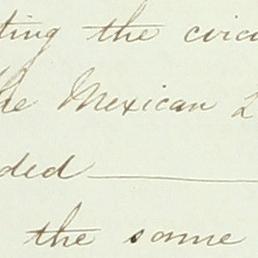 ting the circu
he Mexican
ded
the same